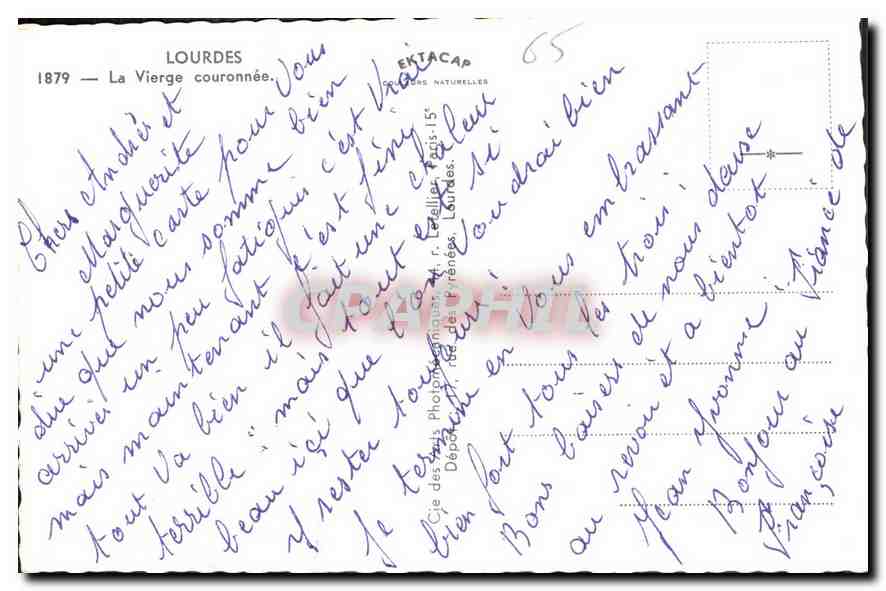 LOURDES
1879 — La Vierge couronnée.
EKTACAP
COULEURS NATURELLES
65
Chers Andrés et
Marguerite
une petite carte pour Vous
dire que nous somme bien
arrivés un peu fatigués c'est Vrai
mais maintenant s'est finj
tout Va bien il fait une chaleur
terrible " mais tout et si
beau içi que l'on Voudrai bien
y rester toujours !
Je termine en Vous embrassant
bien fort tous les trois !
Bons baisers de nous deuse
au revoir et a bientot
Jean Yvonne
Bonjour au Fiancé de
Françoise
Cie des Arts Photomécaniques, 44, r. Letellier, Paris-15e
Dépôt : 71, rue des Pyrénées, Lourdes.
CPAPHIL